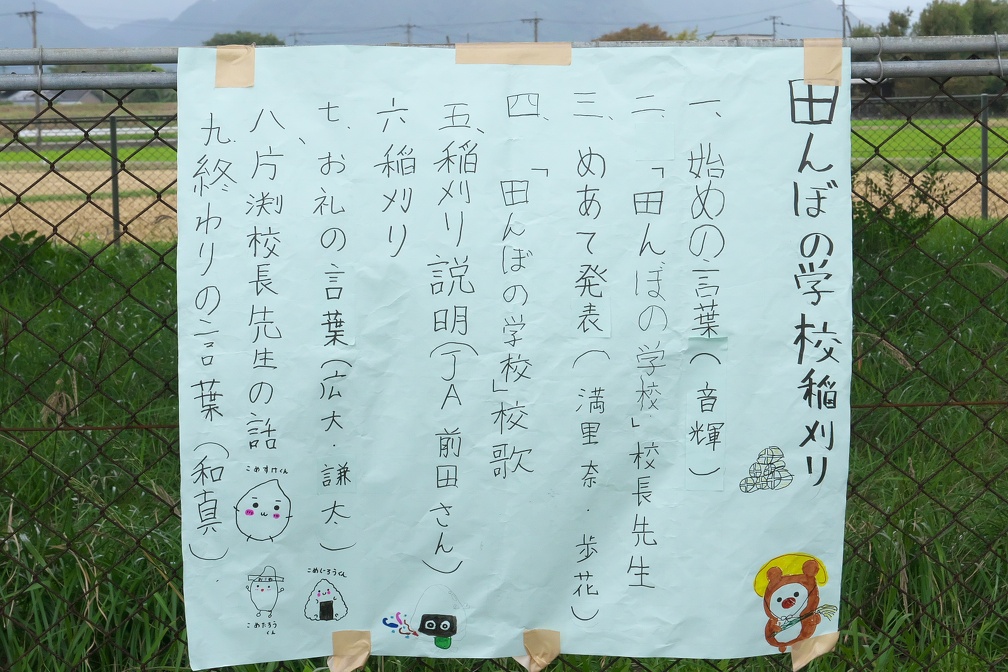 田んぼの学校稲刈り
一、始めの言葉(音輝)
二、「田んぼの学校」校長先生
三、めあて発表(満里奈・歩花)
四、「田んぼの学校」校歌
五、稲刈り説明(JA前田さん)
六稲刈り
七、お礼の言葉(広大・謙太)
八、片渕校長先生の話
九、終わりの言葉(和真)
こめすけくん
こめじろうくん
こめたろうくん